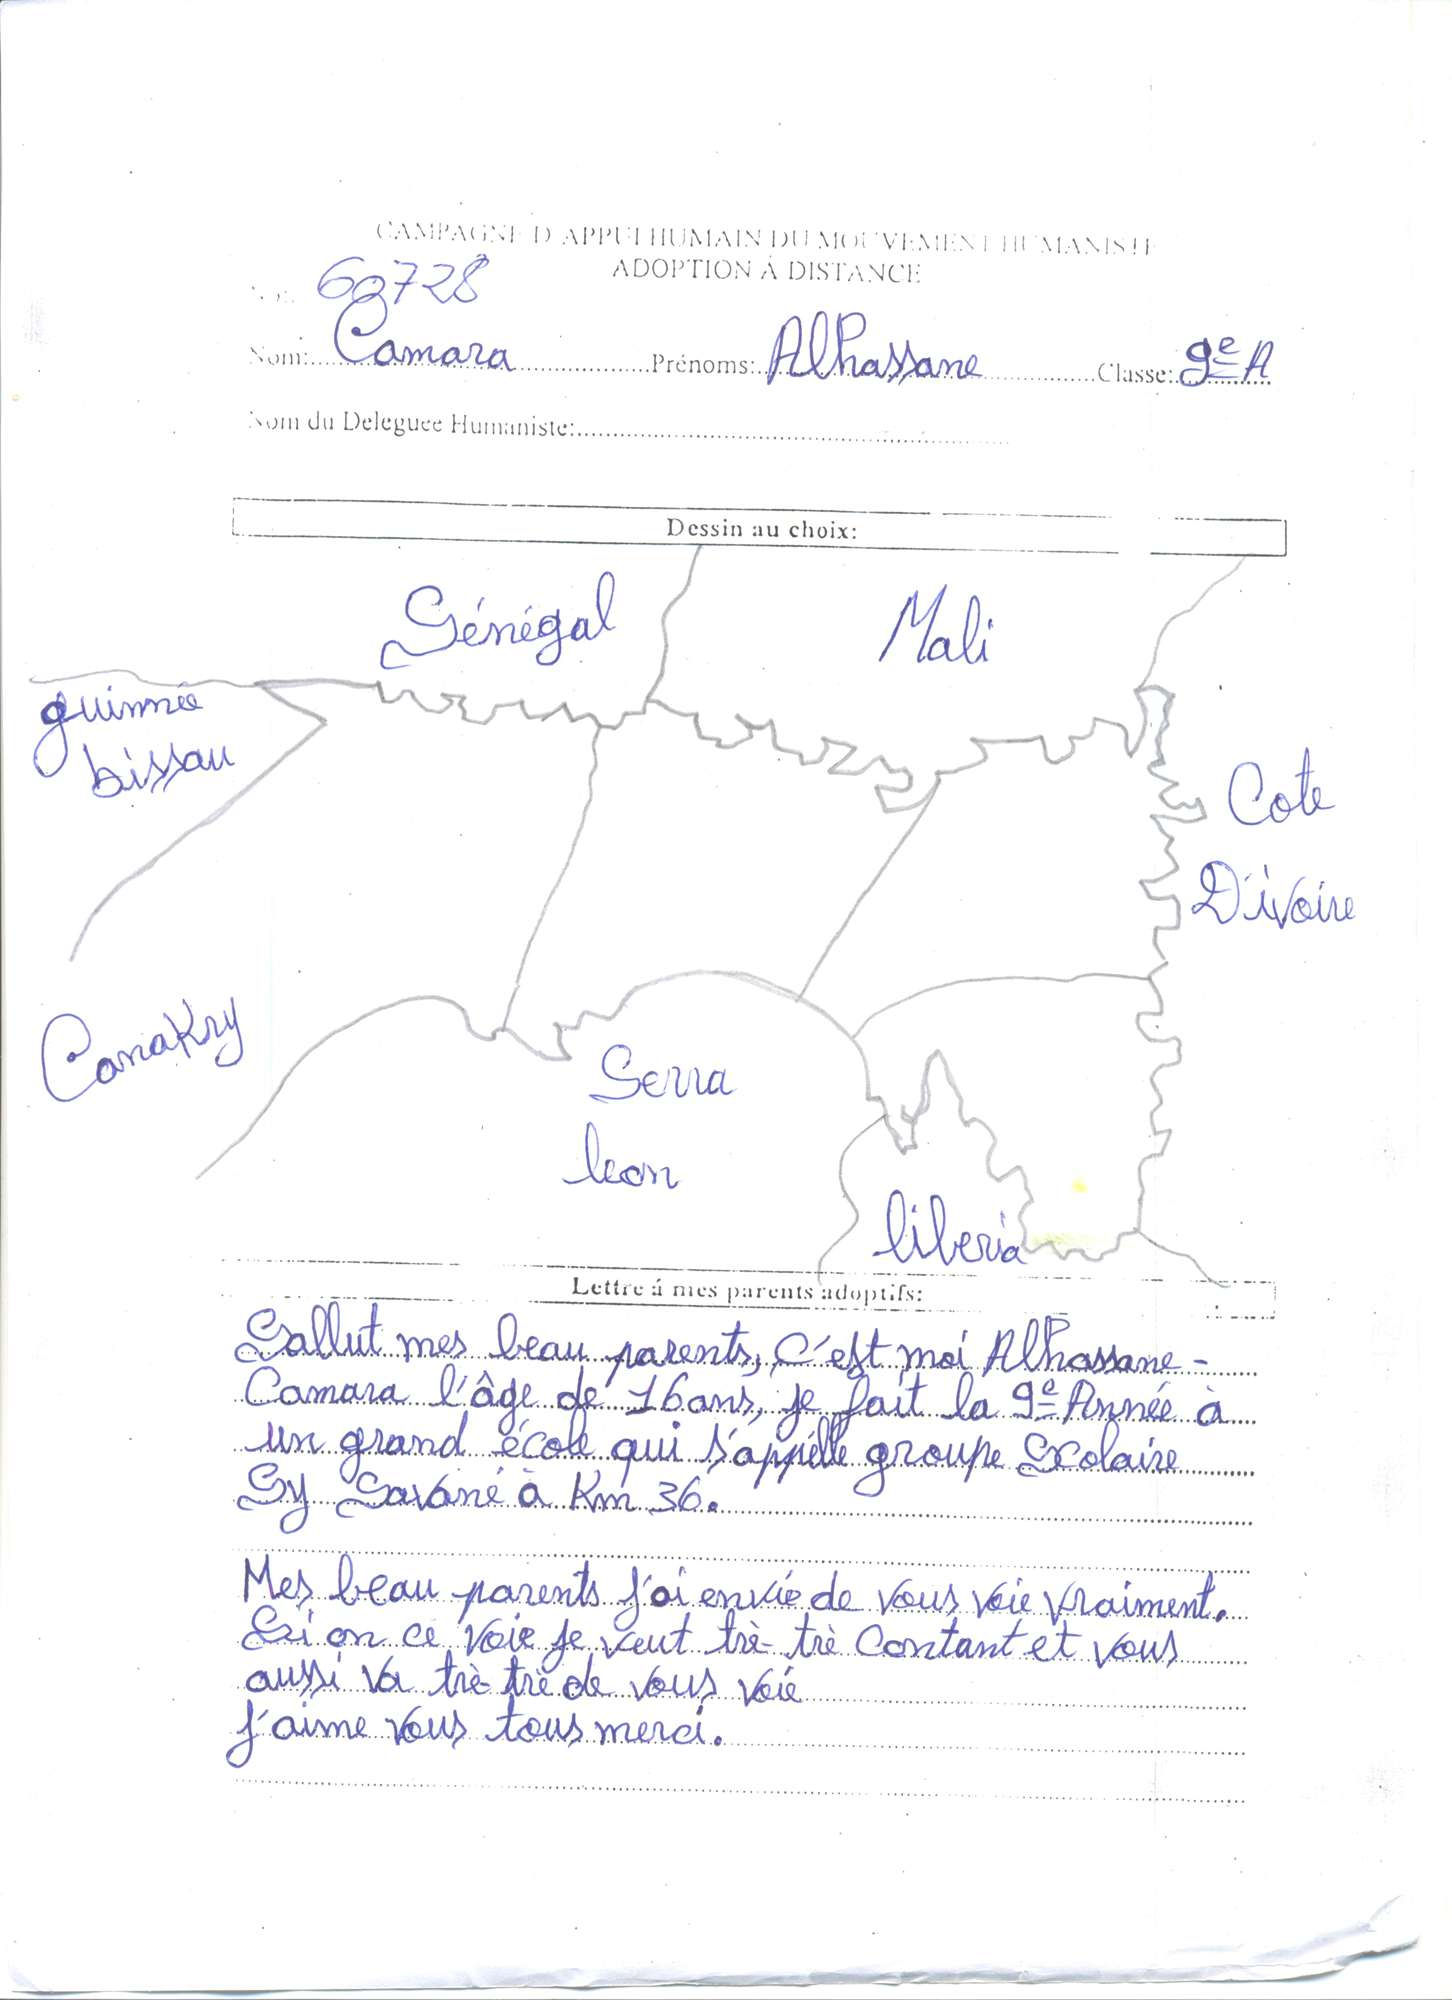 CAMPAGNE D'APPUI HUMAIN DU MOUVEMENT HUMANISTE
ADOPTION Á DISTANCE
Nom: Camara Prénoms: Alhassane Classe: 9e A
Nom du Deleguee Humaniste:
Dessin au choix:
Sénégal
Mali
guinnée
bissau
Cote
D'ivoire
Conakry
Serra
leon
liberia
Lettre á mes parents adoptifs:
Sallut mes beau parents, c'est moi Alhassane-
Camara l'âge de 16ans, je fait la 9e Année à
un grand école qui s'appélle groupe Scolaire
Sy Savané à Km 36.
Mes beau parents j'ai envie de vous voie vraiment.
Si on ce voie je veut trè-trè contant et vous
aussi va trè-trè de vous voie
J'aime vous tous merci.